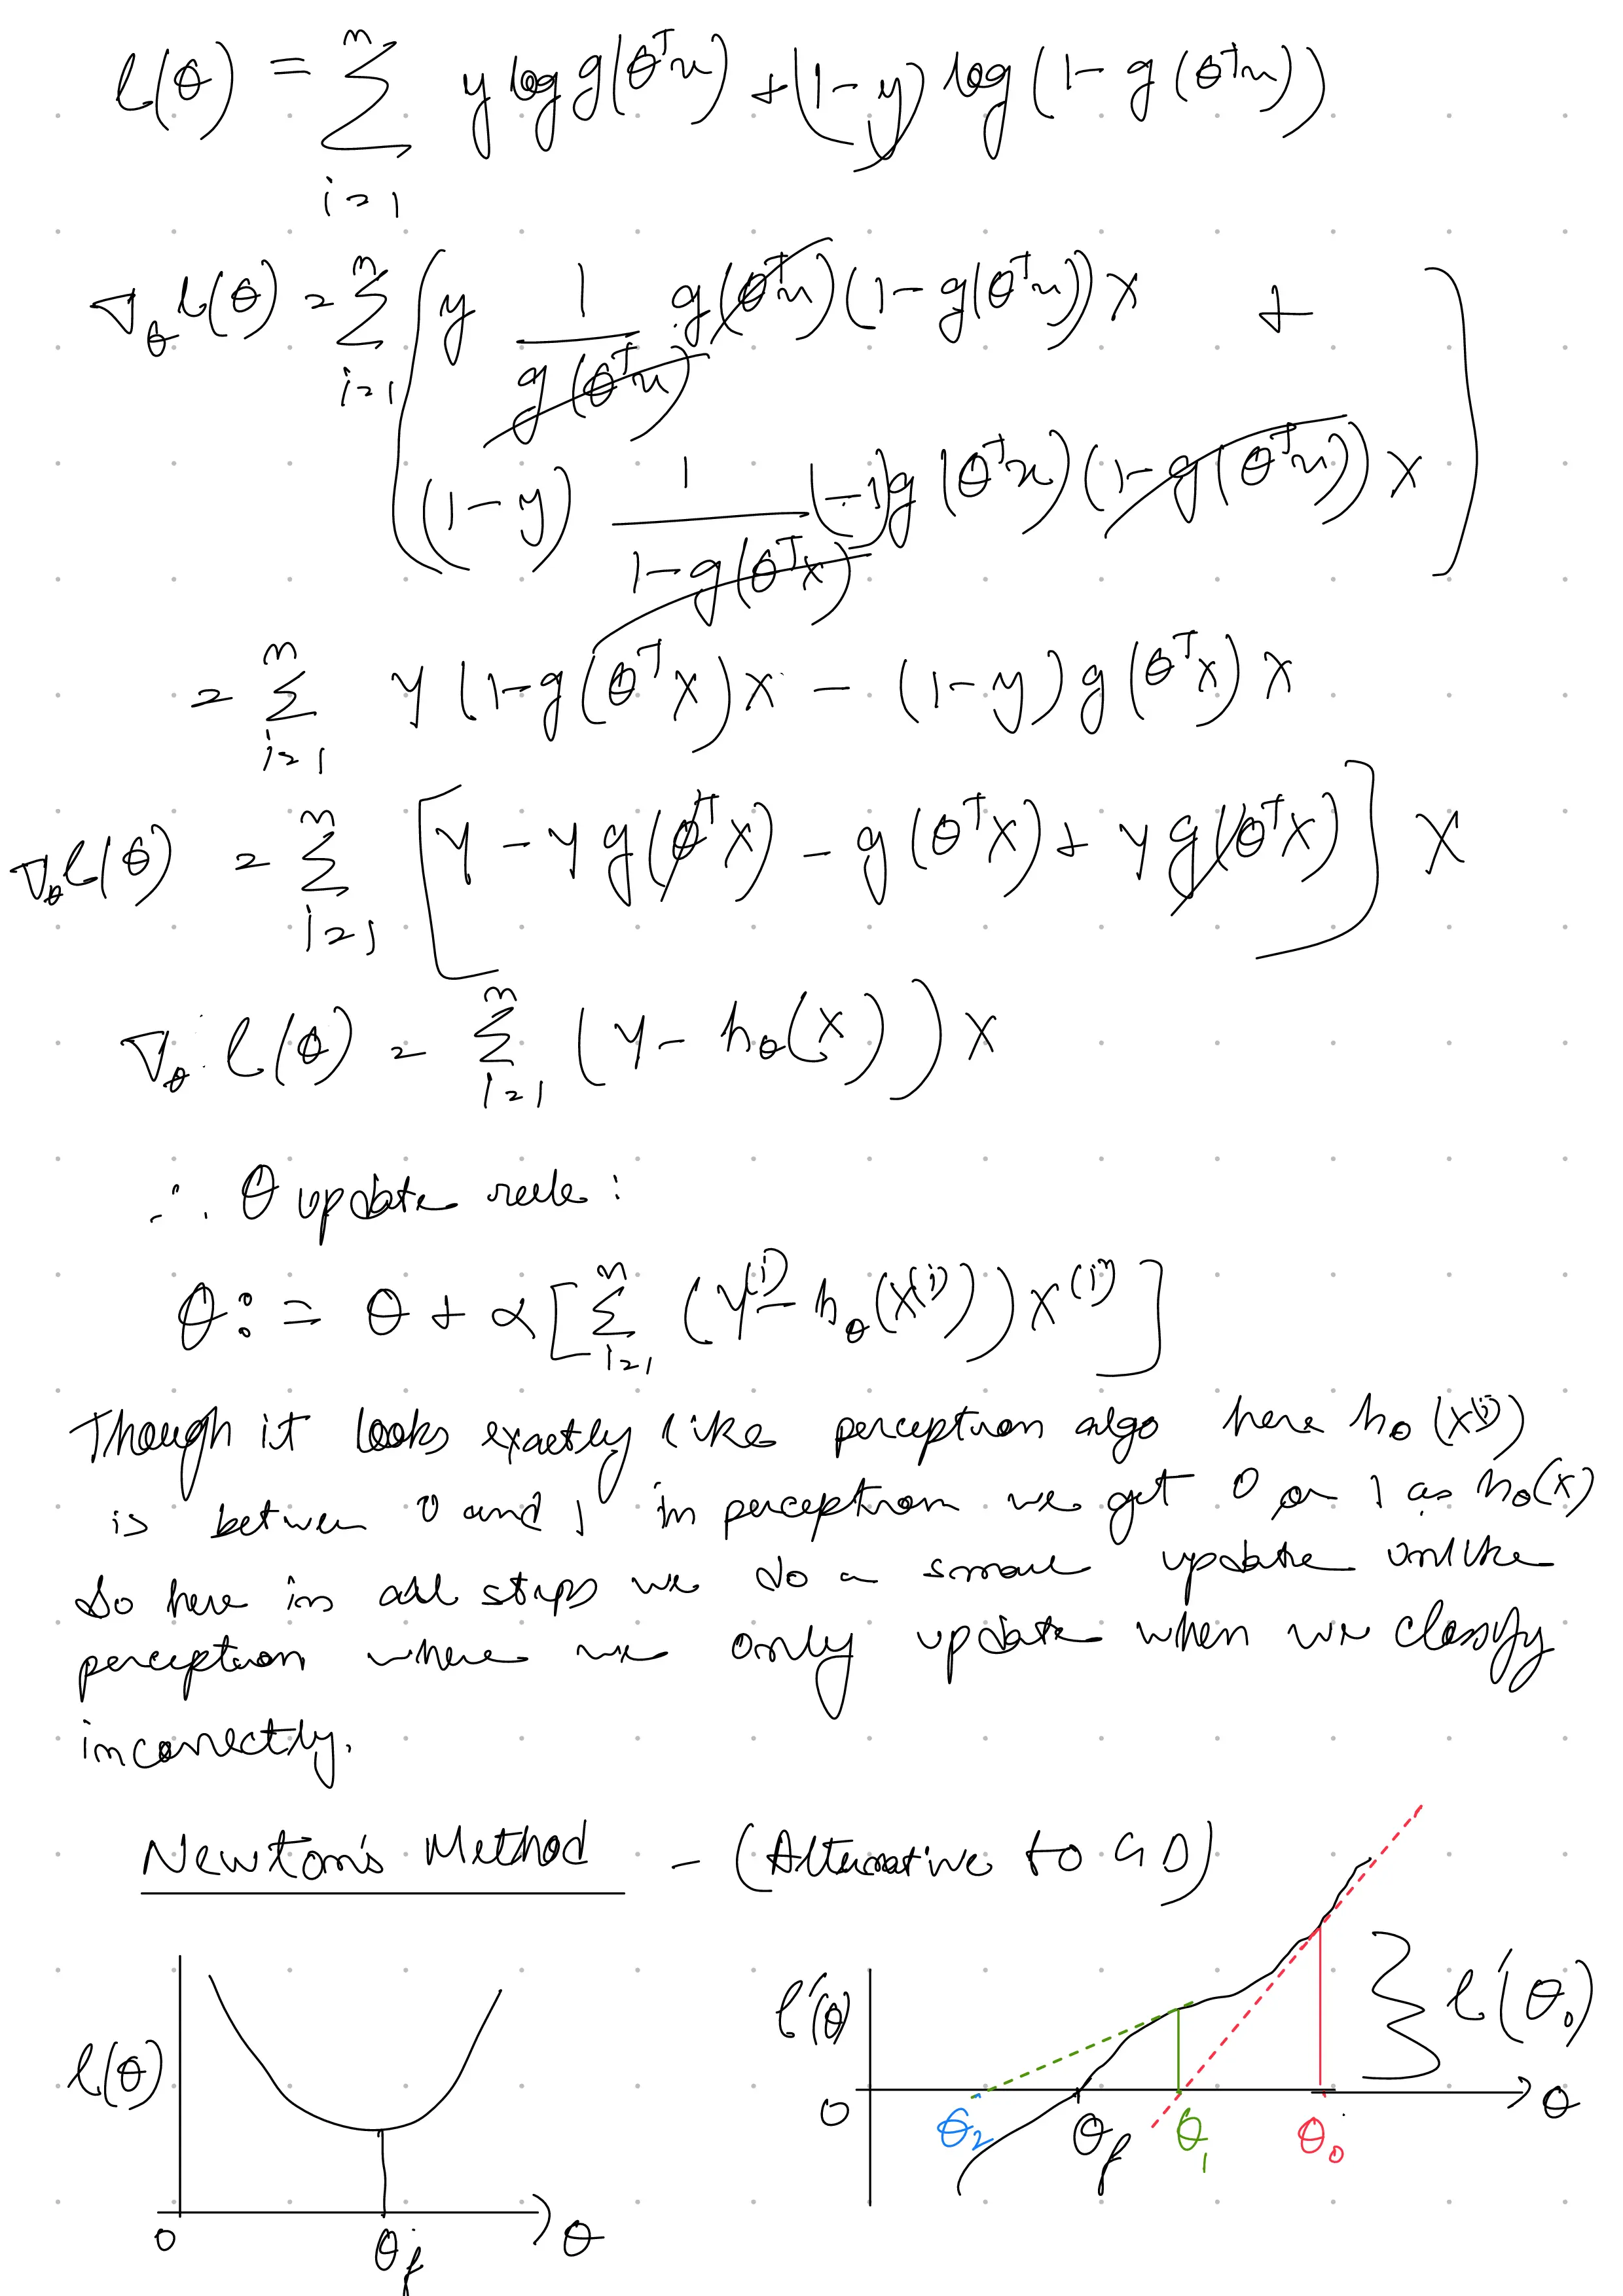 l(θ) = Σ_{i=1}^{n} y log g(θᵀx) + (1-y) log (1- g(θᵀx))
∇_θ l(θ) = Σ_{i=1}^{n} ( y 1/g(θᵀx) . g(θᵀx)(1-g(θᵀx)) x +
(1-y) 1/(1-g(θᵀx)) (-1) g(θᵀx)(1-g(θᵀx)) x )
= Σ_{i=1}^{n} y (1-g(θᵀx) x - (1-y) g(θᵀx) x
∇_θ l(θ) = Σ_{i=1}^{n} [ y - y g(θᵀx) - g(θᵀx) + y g(θᵀx) ] x
∇_θ l(θ) = Σ_{i=1}^{n} (y - h_θ(x)) x
∴ θ update rule :
θ := θ + α [ Σ_{i=1}^{n} (y⁽ⁱ⁾ - h_θ(x⁽ⁱ⁾)) x⁽ⁱ⁾ ]
Though it looks exactly like perceptron algo here h_θ(x⁽ⁱ⁾)
is between 0 and 1 in perceptron we get 0 or 1 as h_θ(x)
So here in all steps we do a small update unlike
perceptron where we only update when we classify
incorrectly.
Newton's Method - (Alternative to GD)
l(θ)
0
θ_f
θ
l'(θ)
0
θ₂
θ_f
θ₁
θ₀
θ
l'(θ₀)